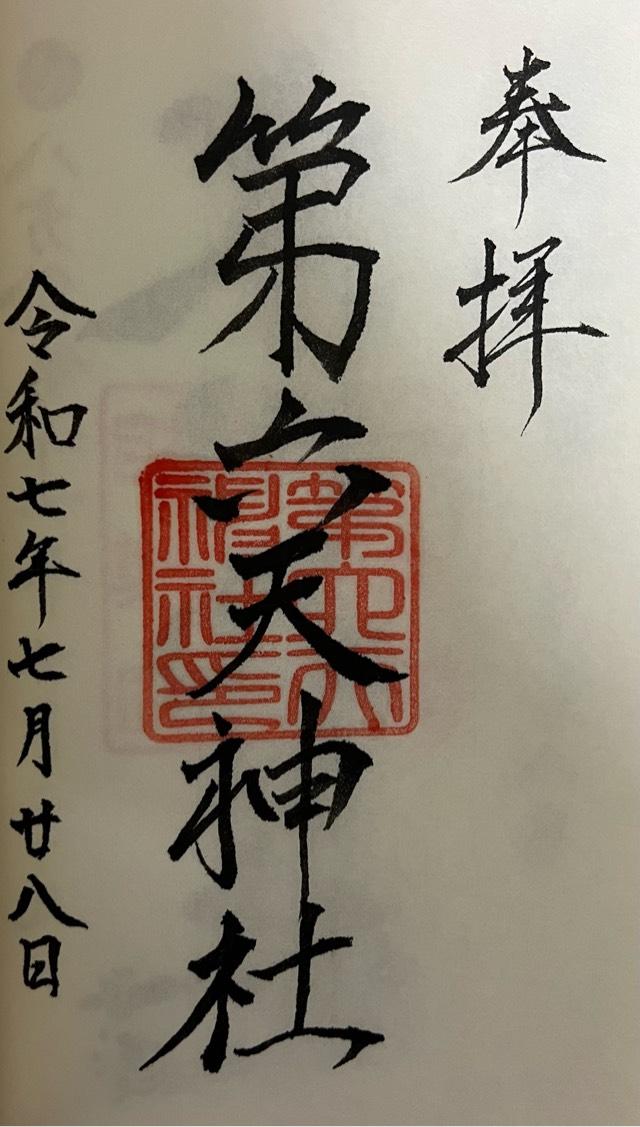 奉拝
第六天神社
第六天
神社印
令和七年七月廿八日